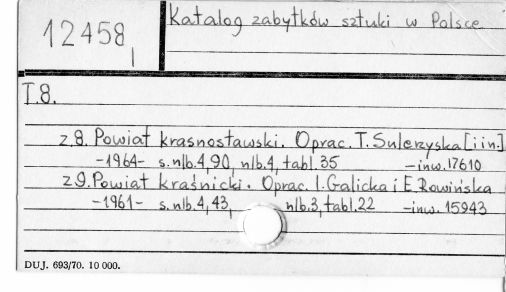 12458,
Katalog zabytków sztuki w Polsce
T.8.
z.8. Powiat krasnostawski. Oprac. T. Sulerzyska [i in.]
-1964- s. nlb. 4, 90, nlb. 4, tabl. 35 -inw. 17610
z 9. Powiat kraśnicki. Oprac. I. Galicka i E. Rowińska
-1961- s. nlb. 4, 43, nlb. 3, tabl. 22 -inw. 15943
DUJ. 693/70. 10 000.